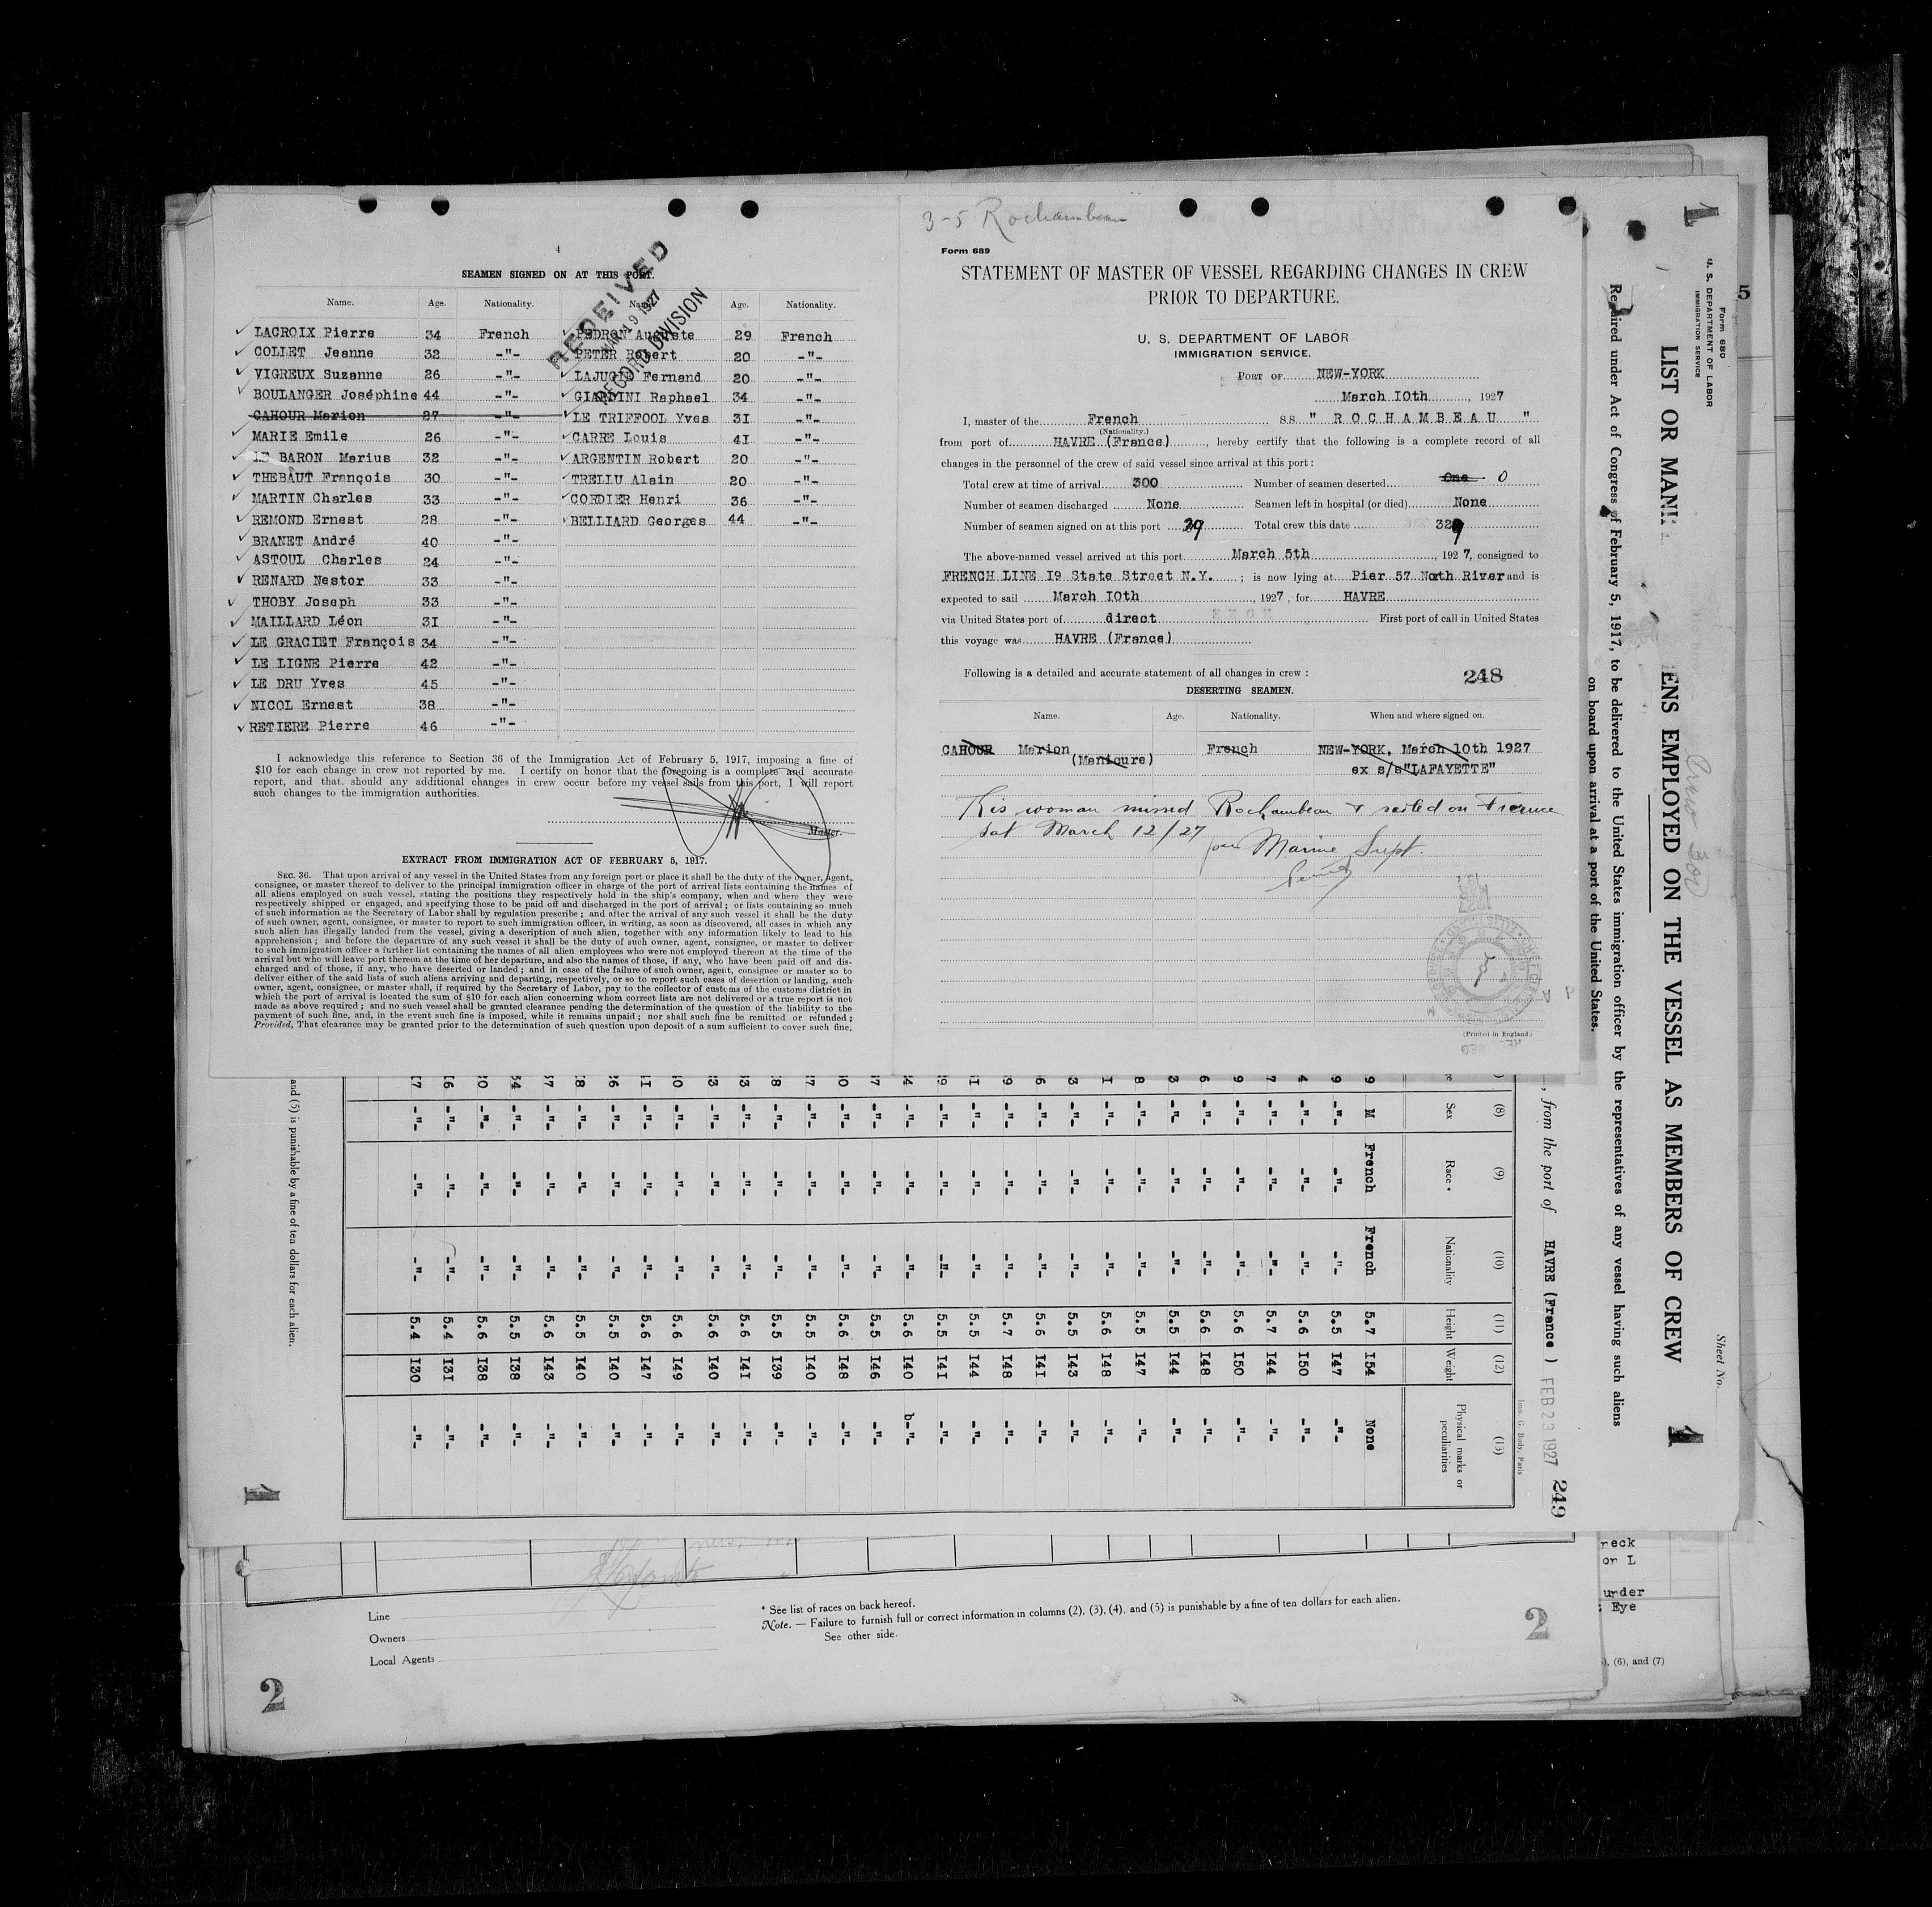 4
SEAMEN SIGNED ON AT THIS PORT.
Name. Age. Nationality. Name. Age. Nationality.
LACROIX Pierre 34 French PEDRON Auguste 29 French
COLLET Jeanne 32 -"- PETER Robert 20 -"-
VIGREUX Suzanne 26 -"- Fernand 20 -"-
BOULANGER Joséphine 44 -"- GIARDINI Raphael 34 -"-
CAHOUR Marion 27 -"- LE TRIFFOOL Yves 31 -"-
MARIE Emile 26 -"- CARRE Louis 41 -"-
LE BARON Marius 32 -"- ARGENTIN Robert 20 -"-
THEBAUT François 30 -"- TRELLU Alain 20 -"-
MARTIN Charles 33 -"- CORDIER Henri 36 -"-
REMOND Ernest 28 -"- BELLIARD Georges 44 -"-
BRANET André 40 -"-
ASTOUL Charles 24 -"-
RENARD Nestor 33 -"-
THOBY Joseph 33 -"-
MAILLARD Léon 31 -"-
LE GRACIET François 34 -"-
LE LIGNE Pierre 42 -"-
LE DRU Yves 45 -"-
NICOL Ernest 38 -"-
RETIERE Pierre 46 -"-
RECEIVED
MAR 19 1927
RECORD DIVISION
I acknowledge this reference to Section 36 of the Immigration Act of February 5, 1917, imposing a fine of
$10 for each change in crew not reported by me. I certify on honor that the foregoing is a complete and accurate
report, and that, should any additional changes in crew occur before my vessel sails from this port, I will report
such changes to the immigration authorities.
Master.
EXTRACT FROM IMMIGRATION ACT OF FEBRUARY 5, 1917.
SEC. 36. That upon arrival of any vessel in the United States from any foreign port or place it shall be the duty of the owner, agent,
consignee, or master thereof to deliver to the principal immigration officer in charge of the port of arrival lists containing the names of
all aliens employed on such vessel, stating the positions they respectively hold in the ship's company, when and where they were
respectively shipped or engaged, and specifying those to be paid off and discharged in the port of arrival; or lists containing so much
of such information as the Secretary of Labor shall by regulation prescribe; and after the arrival of any such vessel it shall be the duty
of such owner, agent, consignee, or master to report to such immigration officer, in writing, as soon as discovered, all cases in which any
such alien has illegally landed from the vessel, giving a description of such alien, together with any information likely to lead to his
apprehension; and before the departure of any such vessel it shall be the duty of such owner, agent, consignee, or master to deliver
to such immigration officer a further list containing the names of all alien employees who were not employed thereon at the time of the
arrival but who will leave port thereon at the time of her departure, and also the names of those, if any, who have been paid off and dis-
charged and of those, if any, who have deserted or landed; and in case of the failure of such owner, agent, consignee or master so to
deliver either of the said lists of such aliens arriving and departing, respectively, or so to report such cases of desertion or landing, such
owner, agent, consignee, or master, shall, if required by the Secretary of Labor, pay to the collector of customs of the customs district in
which the port of arrival is located the sum of $10 for each alien concerning whom correct lists are not delivered or a true report is not
made as above required; and no such vessel shall be granted clearance pending the determination of the question of the liability to the
payment of such fine, and, in the event such fine is imposed, while it remains unpaid; nor shall such fine be remitted or refunded;
Provided, That clearance may be granted prior to the determination of such question upon deposit of a sum sufficient to cover such fine.
3-5 Rochambeau
Form 689
STATEMENT OF MASTER OF VESSEL REGARDING CHANGES IN CREW
PRIOR TO DEPARTURE.
U. S. DEPARTMENT OF LABOR
IMMIGRATION SERVICE.
PORT OF NEW-YORK
March 10th, 1927
I, master of the French SS " ROCHAMBEAU "
(Nationality.)
from port of HAVRE (France), hereby certify that the following is a complete record of all
changes in the personnel of the crew of said vessel since arrival at this port:
Total crew at time of arrival 300 Number of seamen deserted One 0
Number of seamen discharged None Seamen left in hospital (or died) None
Number of seamen signed on at this port 29 Total crew this date 329
The above-named vessel arrived at this port March 5th, 1927, consigned to
FRENCH LINE 19 State Street N.Y.; is now lying at Pier 57 North River and is
expected to sail March 10th, 1927, for HAVRE
via United States port of direct First port of call in United States
this voyage was HAVRE (France)
Following is a detailed and accurate statement of all changes in crew: 248
DESERTING SEAMEN.
Name. Age. Nationality. When and where signed on.
CAHOUR Marion French NEW-YORK, March 10th 1927
(Manicure) ex s/s "LAFAYETTE"
This woman missed Rochambeau & sailed on France
Sat March 12/27
Marine Supt.
(Printed in England.)
1
Form 680
U. S. DEPARTMENT OF LABOR
IMMIGRATION SERVICE
LIST OR MANI ENS EMPLOYED ON THE VESSEL AS MEMBERS OF CREW
Required under Act of Congress of February 5, 1917, to be delivered to the United States immigration officer by the representatives of any vessel having such aliens
on board upon arrival at a port of the United States.
Sheet No.
1
, from the port of HAVRE (France) FEB 23 1927 249
Imp. G. Body, Paris
(8) (9) (10) (11) (12) (13)
Sex Race * Nationality Height Weight Physical marks or peculiarities
9 M French French 5.7 154 None
9 -"- -"- -"- 5.5 147 -"-
4 -"- -"- -"- 5.6 150 -"-
7 -"- -"- -"- 5.7 144 -"-
9 -"- -"- -"- 5.6 150 -"-
6 -"- -"- -"- 5.6 148 -"-
3 -"- -"- -"- 5.5 144 -"-
8 -"- -"- -"- 5.5 147 -"-
1 -"- -"- -"- 5.6 148 -"-
3 -"- -"- -"- 5.5 143 -"-
6 -"- -"- -"- 5.6 141 -"-
9 -"- -"- -"- 5.7 148 -"-
1 -"- -"- -"- 5.5 144 -"-
9 -"- -"- -"- 5.5 141 -"-
4 -"- -"- -"- 5.6 140 b-"-
7 -"- -"- -"- 5.5 146 -"-
0 -"- -"- -"- 5.6 148 -"-
7 -"- -"- -"- 5.5 140 -"-
8 -"- -"- -"- 5.5 139 -"-
3 -"- -"- -"- 5.6 141 -"-
3 -"- -"- -"- 5.6 140 -"-
0 -"- -"- -"- 5.6 149 -"-
1 -"- -"- -"- 5.6 147 -"-
6 -"- -"- -"- 5.5 140 -"-
8 -"- -"- -"- 5.5 140 -"-
7 -"- -"- -"- 5.6 143 -"-
34 -"- -"- -"- 5.5 138 -"-
0 -"- -"- -"- 5.6 138 -"-
6 -"- -"- -"- 5.4 131 -"-
7 -"- -"- -"- 5.4 130 -"-
and (5) is punishable by a fine of ten dollars for each alien.
1
Line
Owners
Local Agents
* See list of races on back hereof.
Note. — Failure to furnish full or correct information in columns (2), (3), (4), and (5) is punishable by a fine of ten dollars for each alien.
See other side.
2
2
5
reck
or L
under
Eye
, (6), and (7)